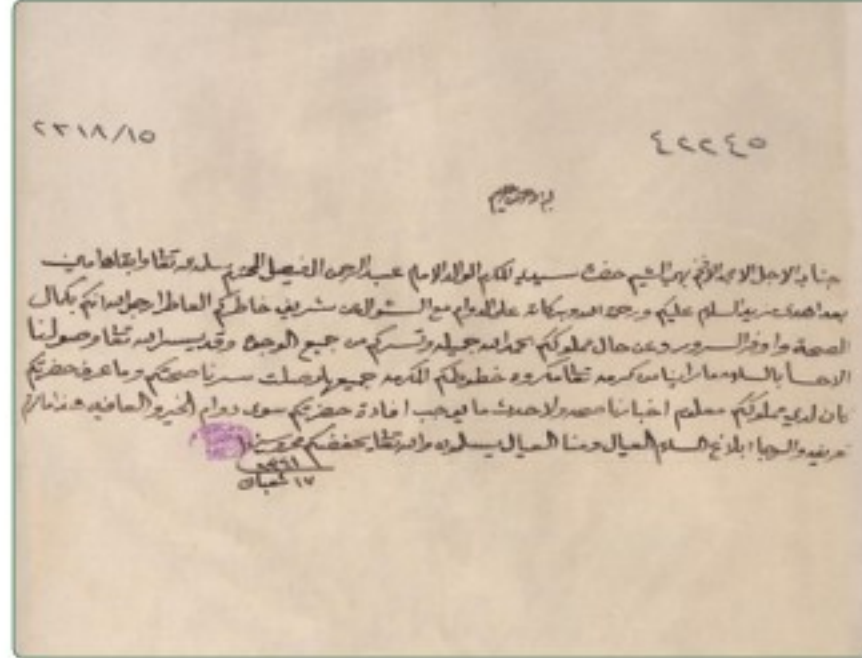 ٢٢١٨/١٥
٤٢٢٤٥
جناب الاجل الامجد الافخم بهي الشيم حضرت سيدي المكرم الوالد الامام عبد الرحمن الفيصل المحترم سلمه الله تعالى وابقاه امين
بعد اهدى مزيد السلام عليكم ورحمة الله وبركاته على الدوام مع السؤال عن شريف خاطركم العاطر ارجو الله انكم بكمال
الصحة واوفر السرور وعن حال مملوككم بحمد الله جميله وتسركم من جميع الوجوه وقد يسر الله تعالى وصولنا
الاحسأ بالسلامه ما راينا من كرمه تعالى مكروه خطوطكم المكرمه جميع وصلت سرنا صحتكم وما عرف حضرتكم
كان لدى مملوككم معلوم اخبارنا ولا حدث ما يوجب افادة حضرتكم سوى دوام الخير والعافيه هذا ما لزم
تعريفه والرجا ابلاغ السلام العيال ومنا العيال يسلمون والله تعالى يحفظكم
١٧ شعبان